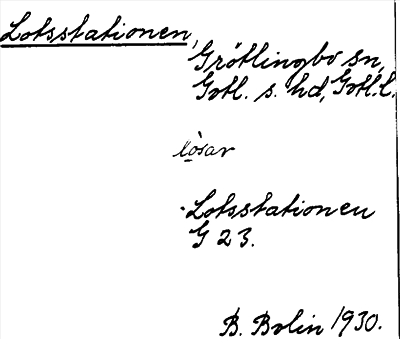 Lotsstationen,
Grötlingbo sn,
Gotl. s. hd, Gotl. l.
lòsar
Lotsstationen
G 23.
B. Bolin 1930.